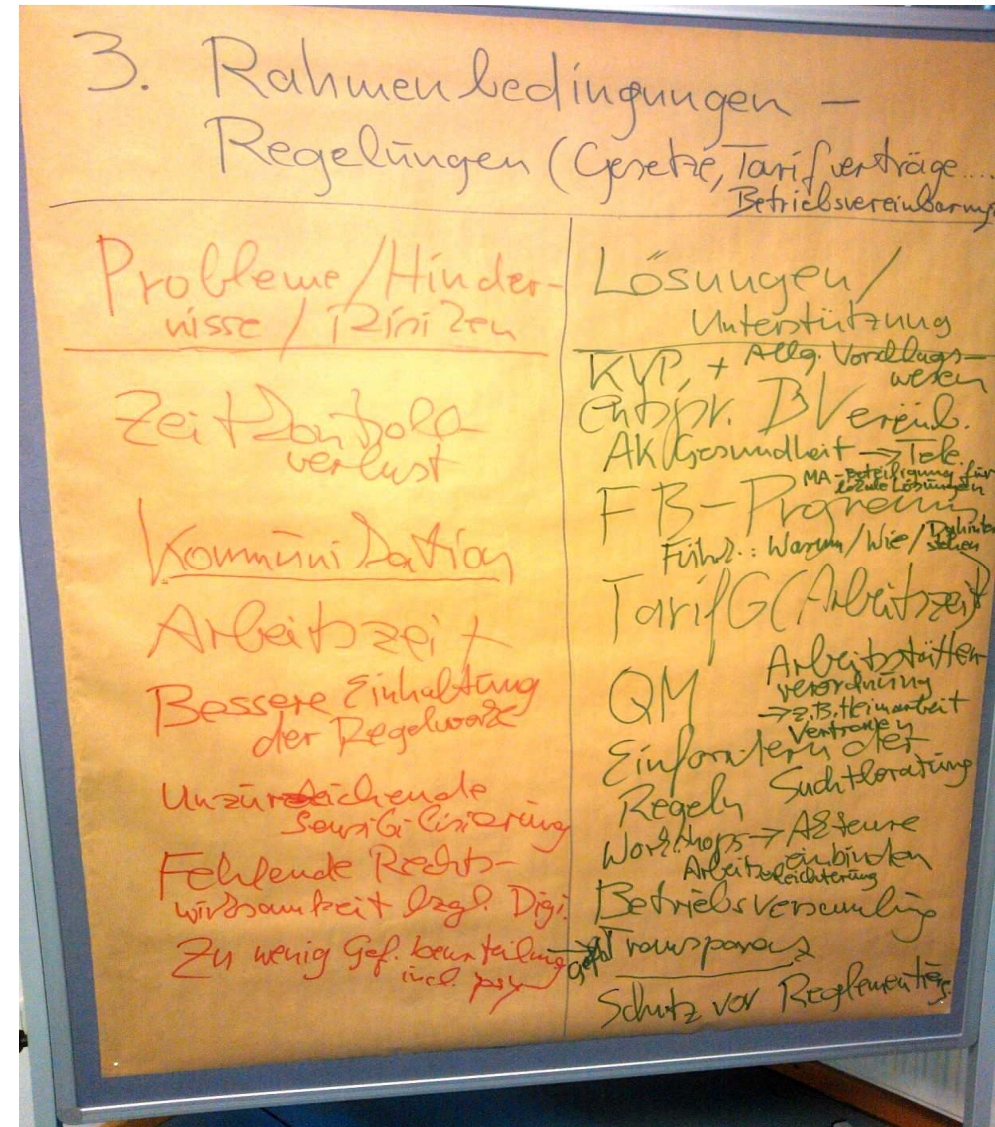 3. Rahmenbedingungen –
Regelungen (Gesetze, Tarifverträge....
Betriebsvereinbarung
Probleme/Hinder-
nisse / Risiken
Zeitkontroll-
verlust
Kommunikation
Arbeitszeit
Bessere Einhaltung
der Regelwerke
Unzureichende
Sensibilisierung
Fehlende Rechts-
wirksamkeit bzgl. Digi.
Zu wenig Gef. beurteilung
incl. psy
Lösungen/
Unterstützung
KVP, + Allg. Vorschlags-
wesen
entspr. BVereinb.
AK Gesundheit → Tele.
MA-Beteiligung für
lokale Lösungen
FB-Programm
Führ.: Warum/Wie/Dahinter
stehen
TarifG (Arbeitszeit)
QM Arbeitsstätten-
verordnung
→ z.B. Heimarbeit
Vertrauen
Einfordern der
Regeln Suchtberatung
Workshops → Akteure
einbinden
Arbeitserleichterung
Betriebsversammlung
Transparenz
Schutz vor Reglementierg.